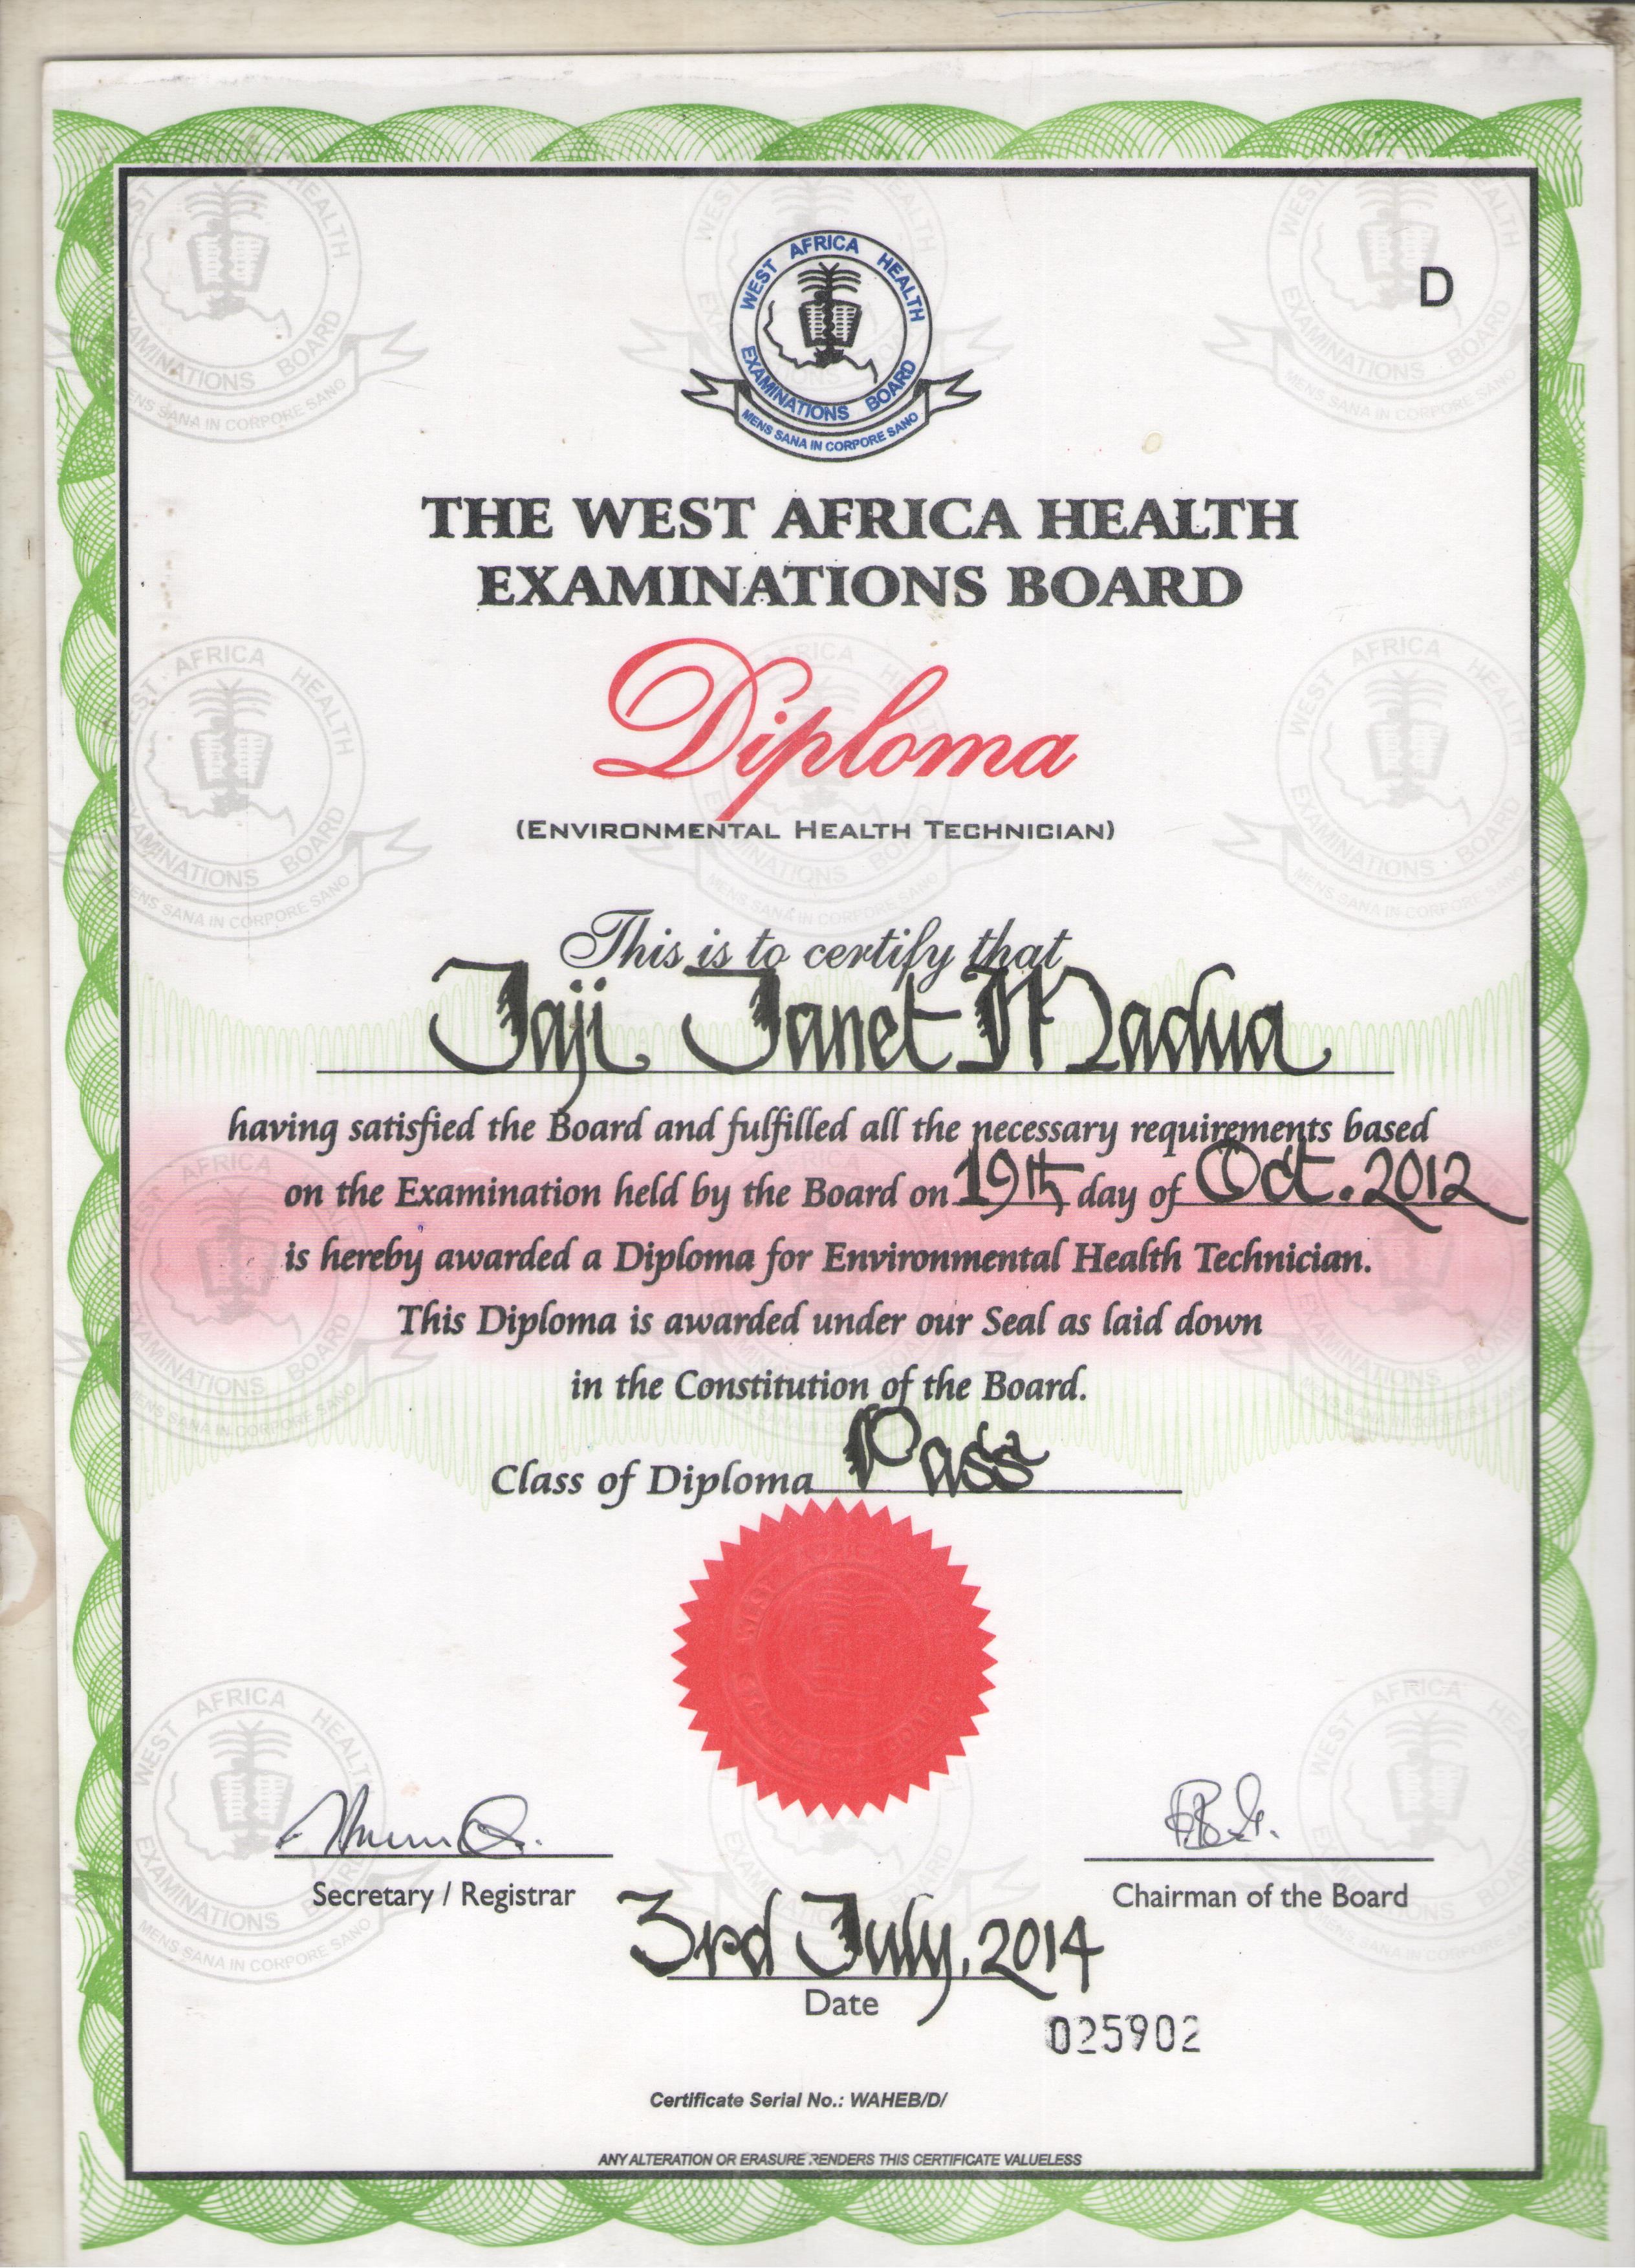 WEST AFRICA HEALTH
EXAMINATIONS BOARD
MENS SANA IN CORPORE SANO
D
THE WEST AFRICA HEALTH
EXAMINATIONS BOARD
Diploma
(ENVIRONMENTAL HEALTH TECHNICIAN)
This is to certify that
Jaji Janet Madua
having satisfied the Board and fulfilled all the necessary requirements based
on the Examination held by the Board on 19th day of Oct. 2012
is hereby awarded a Diploma for Environmental Health Technician.
This Diploma is awarded under our Seal as laid down
in the Constitution of the Board.
Class of Diploma Pass
Secretary / Registrar
Chairman of the Board
3rd July, 2014
Date
025902
Certificate Serial No.: WAHEB/D/
ANY ALTERATION OR ERASURE RENDERS THIS CERTIFICATE VALUELESS